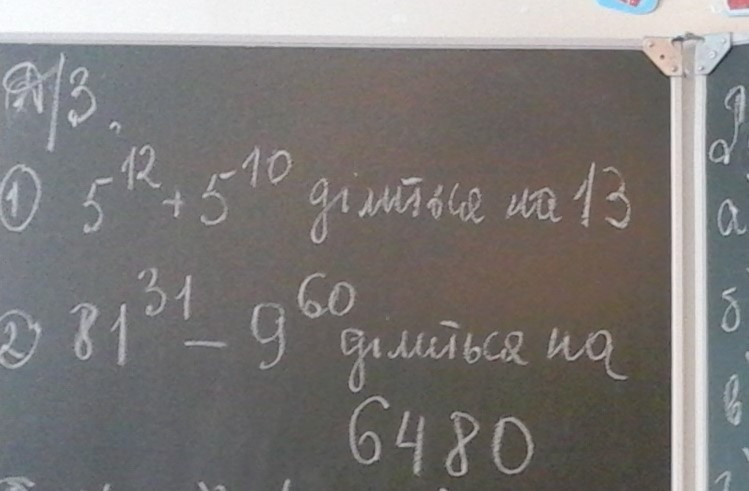 Д/З.
① 5¹² + 5¹⁰ ділиться на 13
② 81³¹ – 9⁶⁰ ділиться на
6480
а
б
в